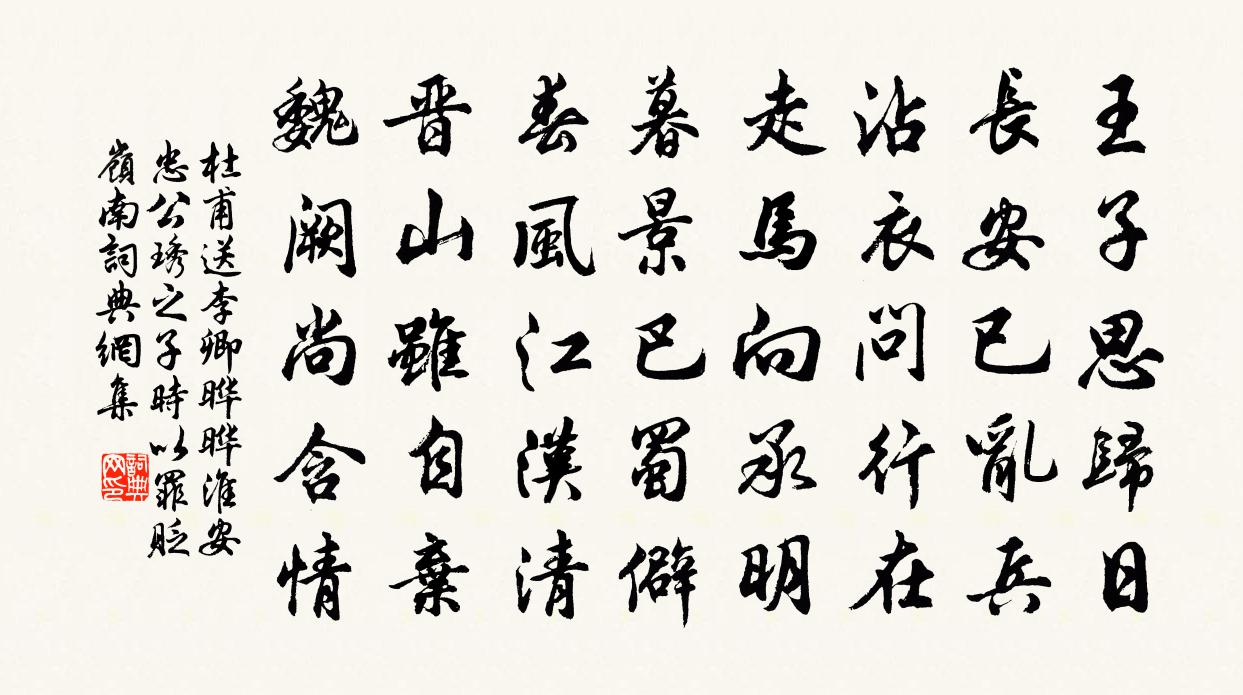 王子思歸日
長安已亂兵
沾衣問行在
走馬向承明
暮景巴蜀僻
春風江漢清
晉山雖自棄
魏闕尚含情
杜甫送李卿曄曄淮安
忠公琇之子時以罪貶
嶺南詞典網集
詞典網印